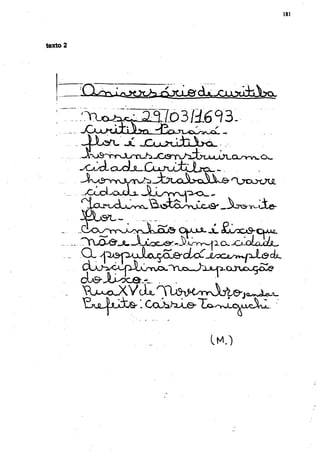 181
texto 2
O aniversário de curitiba
nasci 29/03/1693.
Curitiba Paraná -
flor é Curitiba
homens construirama
cidade Curitiba -
homens trabalho varre
cidade limpa -
Jardim Botânico - bonito
flor -
caminhão que é lixo que
não e lixo - limpa cidade
a população dá exemplo de
disciplina na separação
do lixo -
Rua XV de Novembro
Prefeito: Cassio Taniguchi
(M.)